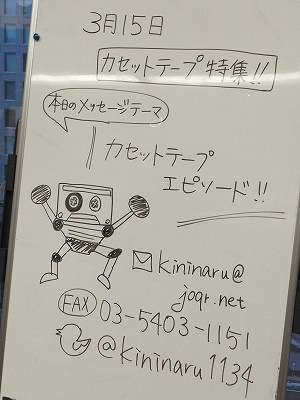 3月15日
カセットテープ特集!!
本日のメッセージテーマ
カセットテープ
エピソード!!
kininaru@
joqr.net
FAX 03-5403-1151
@kininaru1134